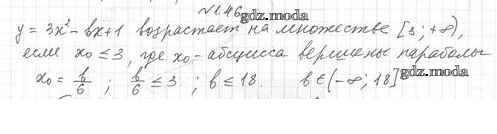 №1.46
gdz.moda
y = 3x² - bx+1 возрастает на множестве [3; +∞),
если x₀ ≤ 3, где x₀ - абсцисса вершины параболы
x₀ = b/6 ; b/6 ≤ 3 ; b ≤ 18. b ∈ (-∞; 18]
gdz.moda